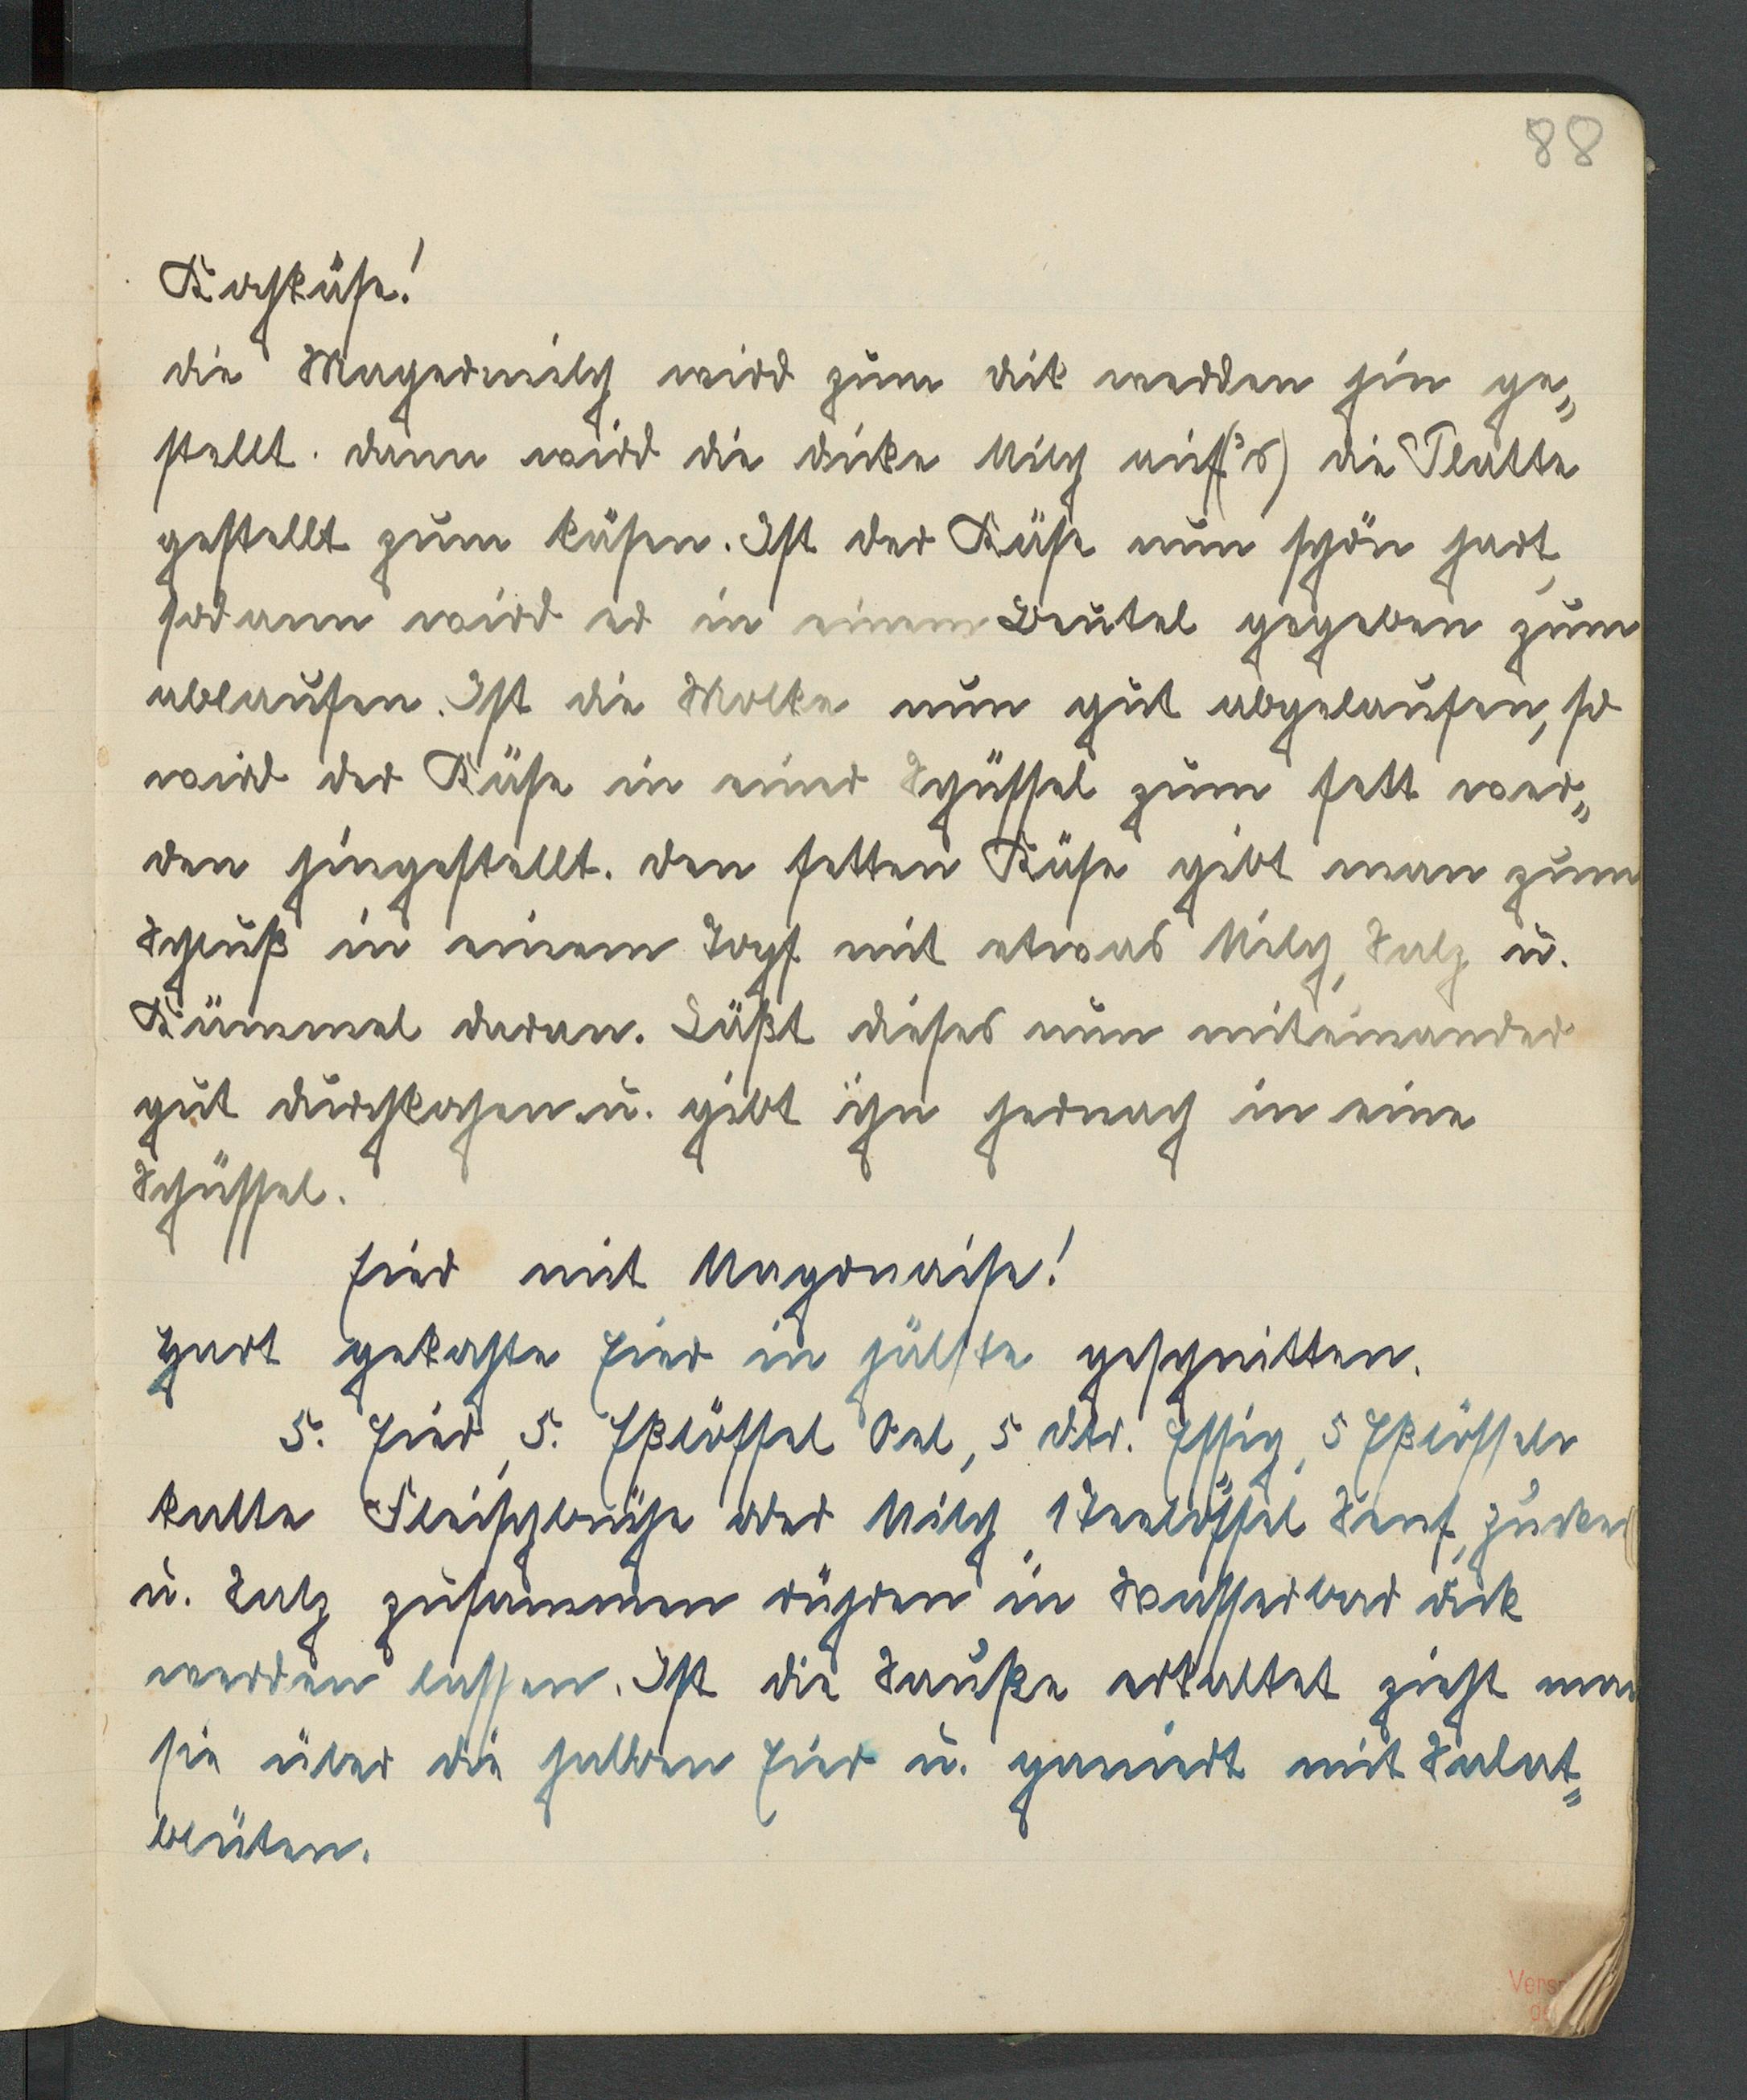 88
Kochkäse!
die Magermilch wird zum dik werden hin ge„
stellt. dann wird die dicke Milch auf('s) die Platte
gestellt zum käsen. Ist der Käse nun schön hart,
sodann wird er in einem Beutel gegeben zum
ablaufen. Ist die Molke nun gut abgelaufen, so
wird der Käse in einer Schüssel zum fett wer„
den hingestellt. den fetten Käse gibt man zum
Schluß in einem Topf mit etwas Milch, Salz u.
Kümmel daran. Läßt dieses nun miteinander
gut durchkochen u. gibt ihn hernach in eine
Schüssel.
Eier mit Mayonaise!
Hart gekochte Eier in hälfte geschnitten.
5. Eier, 5. Eßlöffel Oel, 5 dtr. Essig, 5 Eßlöffeln
kalte Fleischbrühe oder Milch, 1 Teelöffel Senf, Zucker
u. Salz zusammen rühren in Wasserbad dik
werden lassen. Ist die Sauße erkaltet zieht man
sie über die halben Eier u. garniert mit Salat„
blüten.